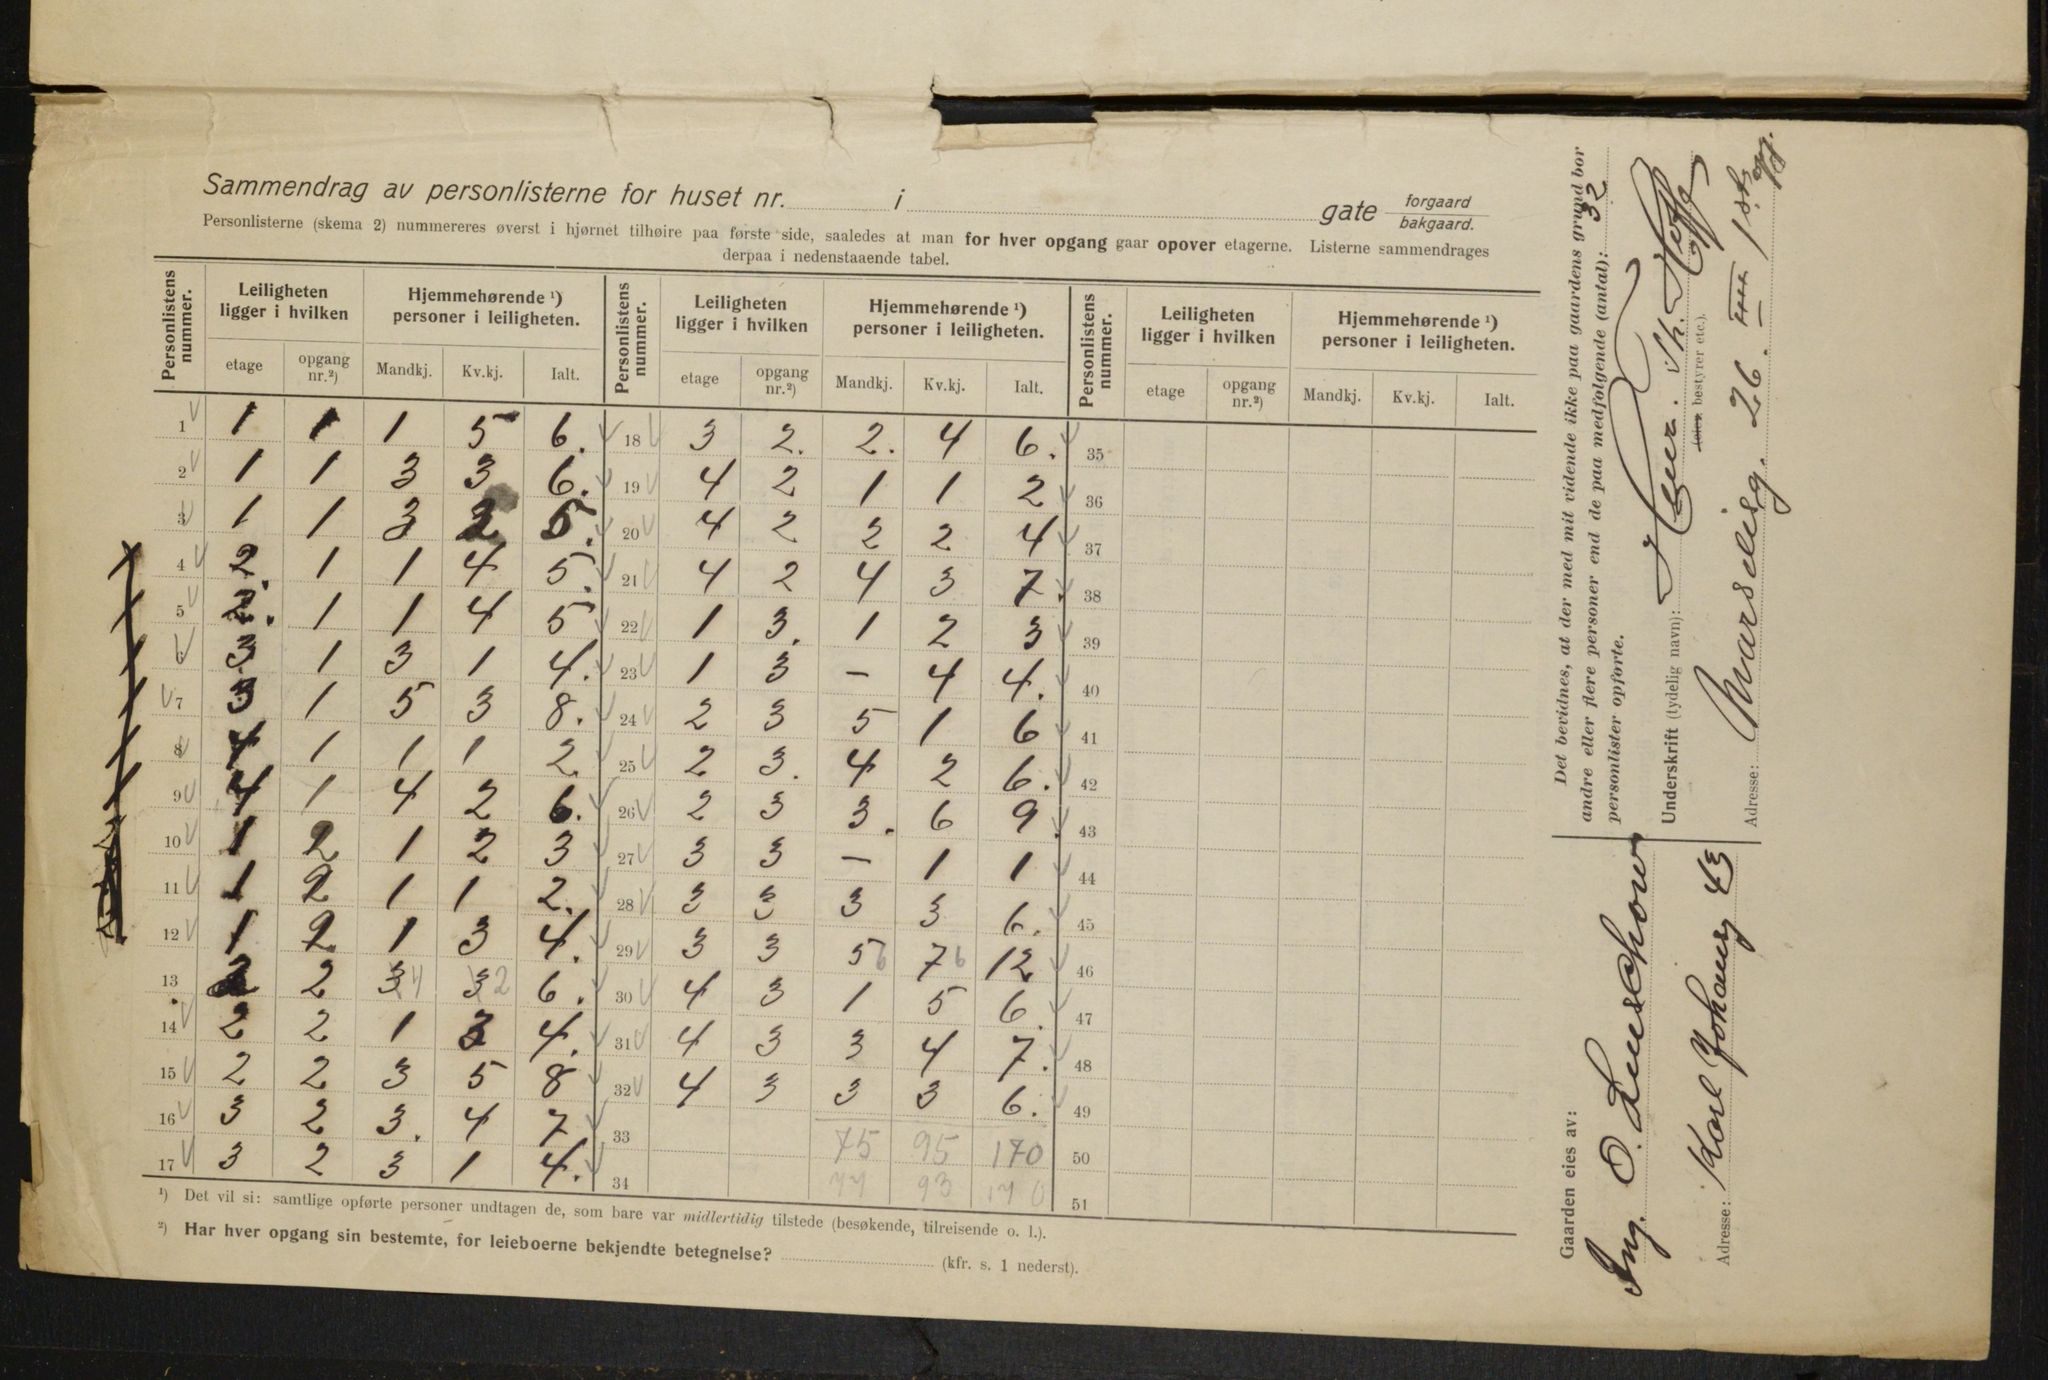 Sammendrag av personlisterne for huset nr. i gate forgaard bakgaard.
Personlisterne (skema 2) nummereres øverst i hjørnet tilhøire paa første side, saaledes at man for hver opgang gaar opover etagerne. Listerne sammendrages
derpaa i nedenstaaende tabel.
Personlistens nummer. Leiligheten ligger i hvilken Hjemmehørende ¹) personer i leiligheten. Personlistens nummer. Leiligheten ligger i hvilken Hjemmehørende ¹) personer i leiligheten. Personlistens nummer. Leiligheten ligger i hvilken Hjemmehørende ¹) personer i leiligheten.
etage opgang nr.²) Mandkj. Kv.kj. Ialt. etage opgang nr.²) Mandkj. Kv.kj. Ialt. etage opgang nr.²) Mandkj. Kv.kj. Ialt.
1 1 1 1 5 6. 18 3 2. 2. 4 6. 35
2 1 1 3 3 6. 19 4 2 1 1 2 36
3 1 1 3 2 5. 20 4 2 2 2 4 37
4 2. 1 1 4 5. 21 4 2 4 3 7. 38
5 2. 1 1 4 5 22 1 3. 1 2 3 39
6 3 1 3 1 4. 23 1 3 – 4 4. 40
7 3 1 5 3 8. 24 2 3 5 1 6 41
8 4 1 1 1 2. 25 2 3. 4 2 6. 42
9 4 1 4 2 6. 26 2 3 3. 6 9. 43
10 1 2 1 2 3 27 3 3 – 1 1 44
11 1 2 1 1 2. 28 3 3 3 3 6. 45
12 1 2 1 3 4. 29 3 3 5 6 7 6 12 46
13 2 2 3 4 3 2 6. 30 4 3 1 5 6. 47
14 2 2 1 3 4. 31 4 3 3 4 7. 48
15 2 2 3 5 8 32 4 3 3 3 6. 49
16 3 2 3. 4 7 33 75 95 170 50
17 3 2 3 1 4. 34 77 93 170 51
¹) Det vil si: samtlige opførte personer undtagen de, som bare var midlertidig tilstede (besøkende, tilreisende o. l.).
²) Har hver opgang sin bestemte, for leieboerne bekjendte betegnelse? (kfr. s. 1 nederst).
Det bevidnes, at der med mit vidende ikke paa gaardens grund bor
andre eller flere personer end de paa medfølgende (antal): 32
personlister opførte.
Underskrift (tydelig navn): Henr. Th. Hoff
(eier, bestyrer etc.).
Adresse: Marselisg. 26. III 1st opg.
Gaarden eies av:
Ing. O. Lowschow
Adresse: Karl Johansg 43